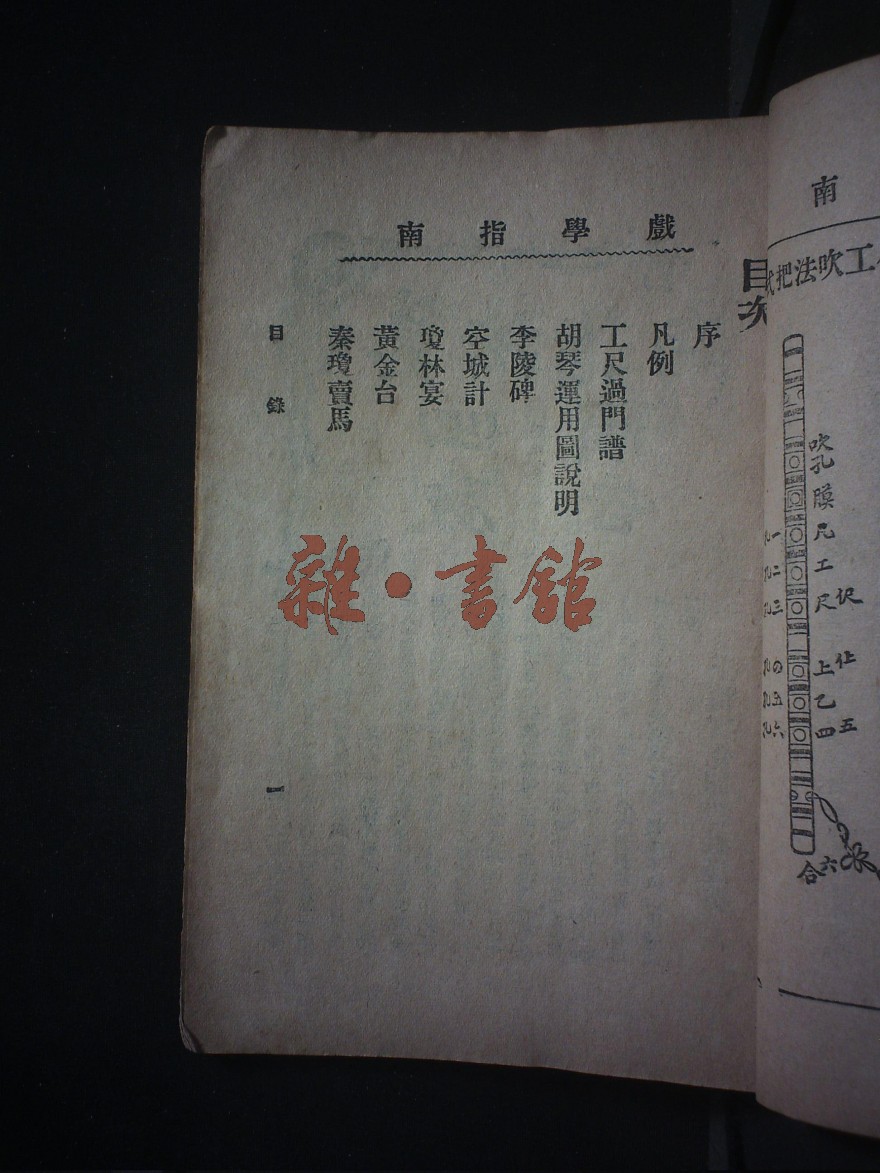 戲學指南
目次
序
凡例
工尺過門譜
胡琴運用圖說明
李陵碑
空城計
瓊林宴
黃金台
秦瓊賣馬
目錄
一
雜·書館
南
工吹法把式
吹孔
膜
凡
工
尺 伬
上 仩
乙
四 五
合 六
一孔
二孔
三孔
四孔
五孔
六孔